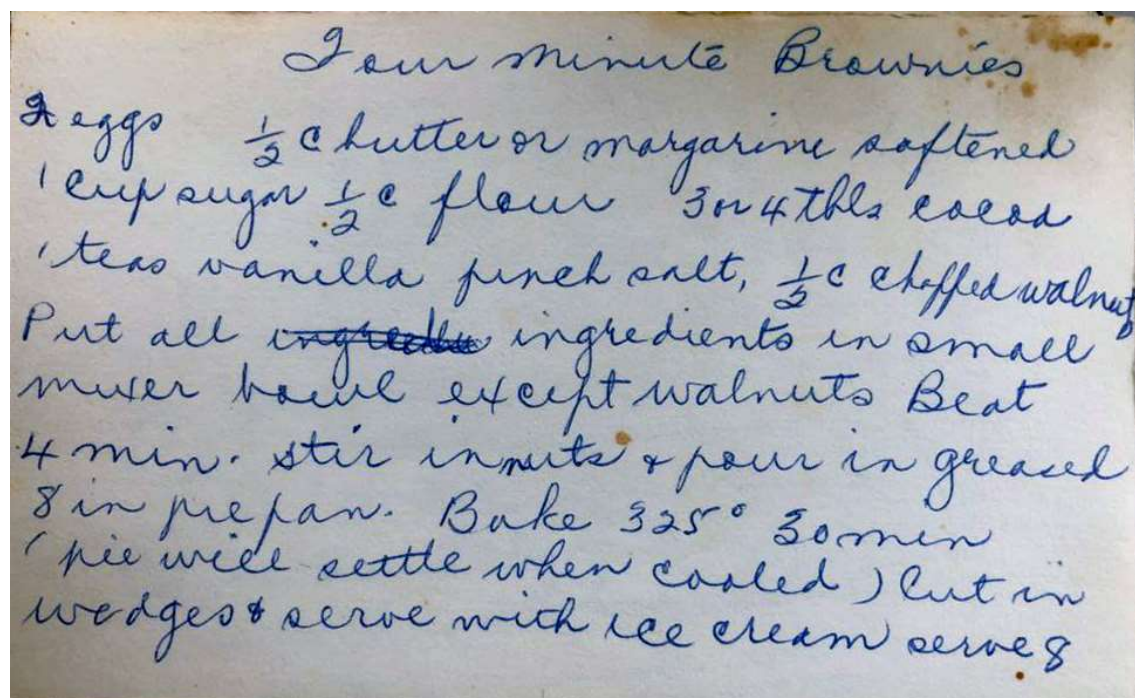 Four Minute Brownies
2 eggs ½ c butter or margarine softened
1 cup sugar ½ c flour 3 or 4 tbls cocoa
1 teas vanilla pinch salt, ½ c chopped walnuts
Put all ingredients in small
mixer bowl except walnuts Beat
4 min. stir in nuts & pour in greased
8 in pie pan. Bake 325° 30 min
(pie will settle when cooled) Cut in
wedges & serve with ice cream serve 8